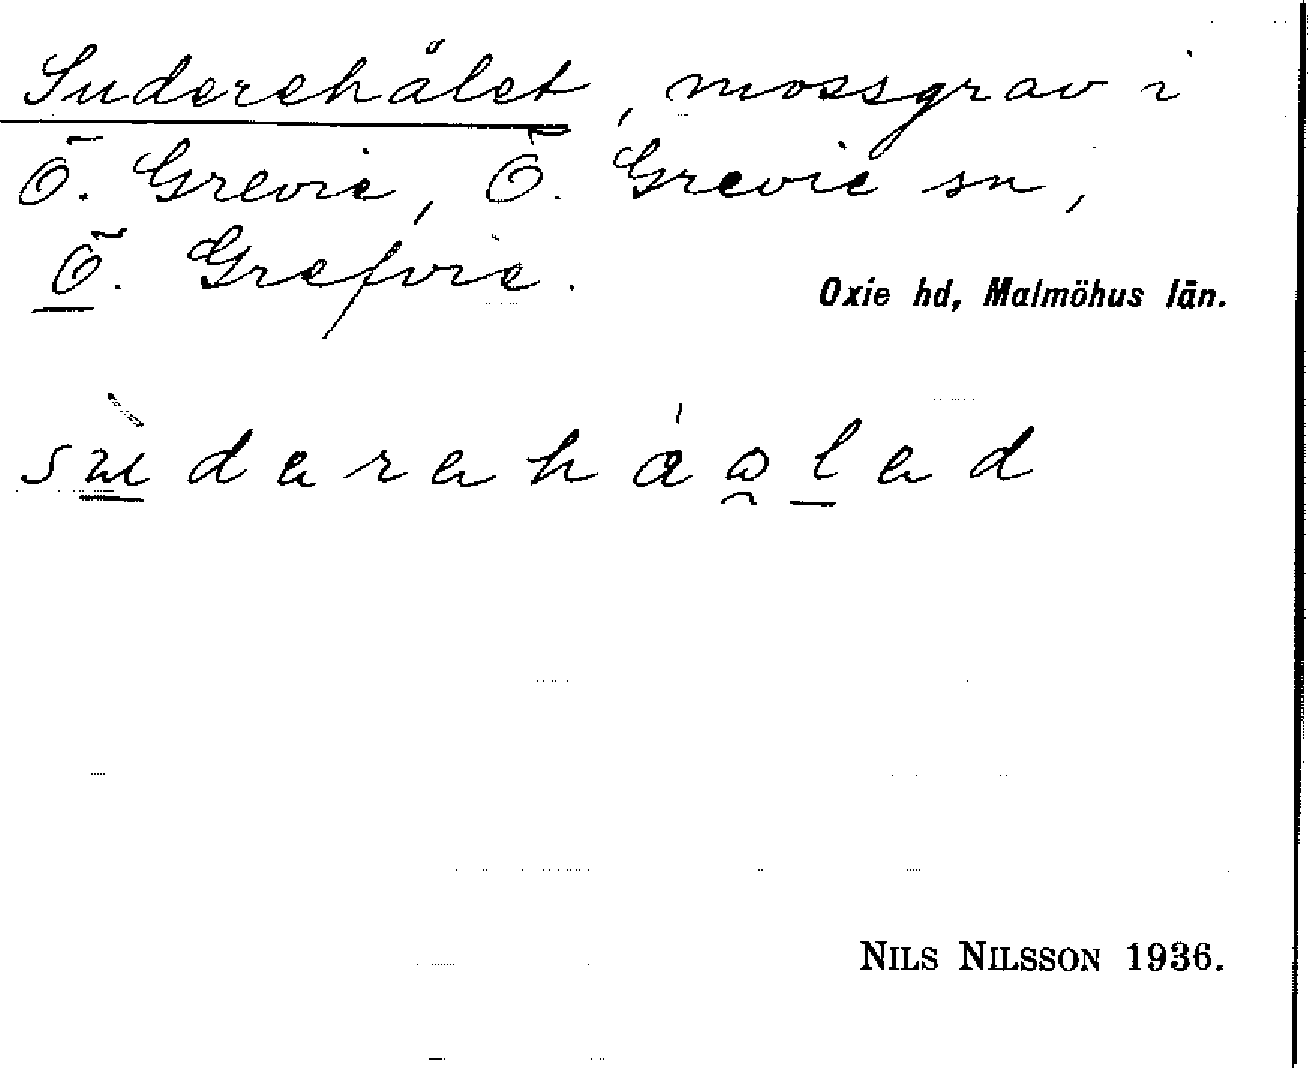 Suderehålet, mossgrav i
Ö. Grevie, Ö. Grevie sn,
Ö. Grefvie.
Oxie hd, Malmöhus län.
sùdərəháo̯ləd
NILS NILSSON 1936.